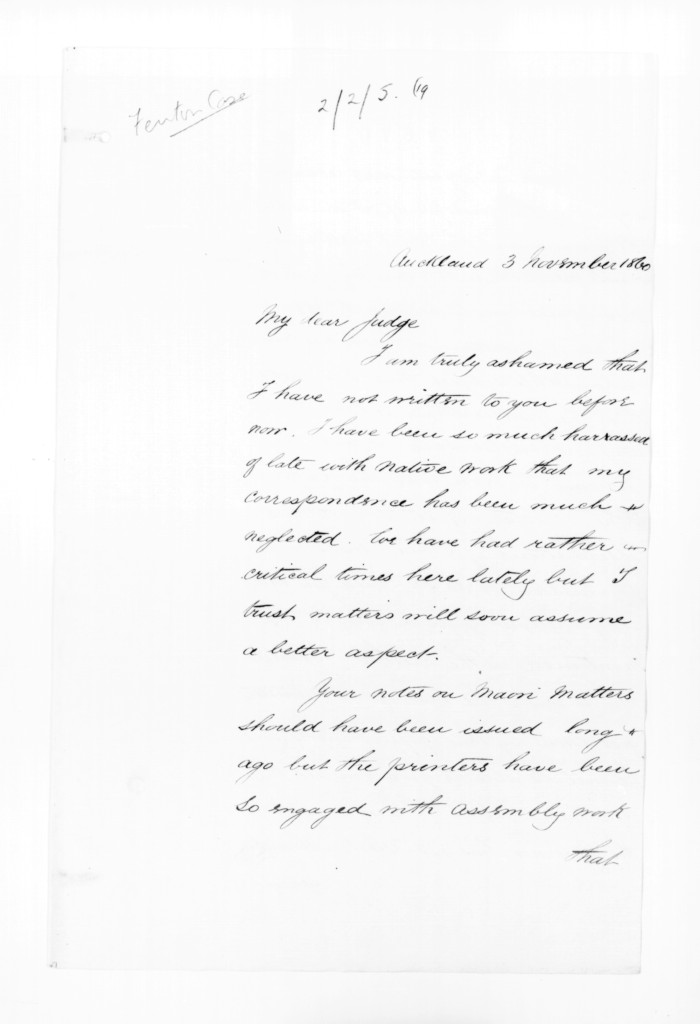 Fenton Case
2/2/5. 
Auckland 3 November 1860
My dear Judge
I am truly ashamed that
I have not written to you before
now. I have been so much harrassed
of late with native work that my
correspondence has been much
neglected. We have had rather
critical times here lately but I
trust matters will soon assume
a better aspect.
Your notes on Maori Matters
should have been issued long
ago but the printers have been
so engaged with Assembly work
that